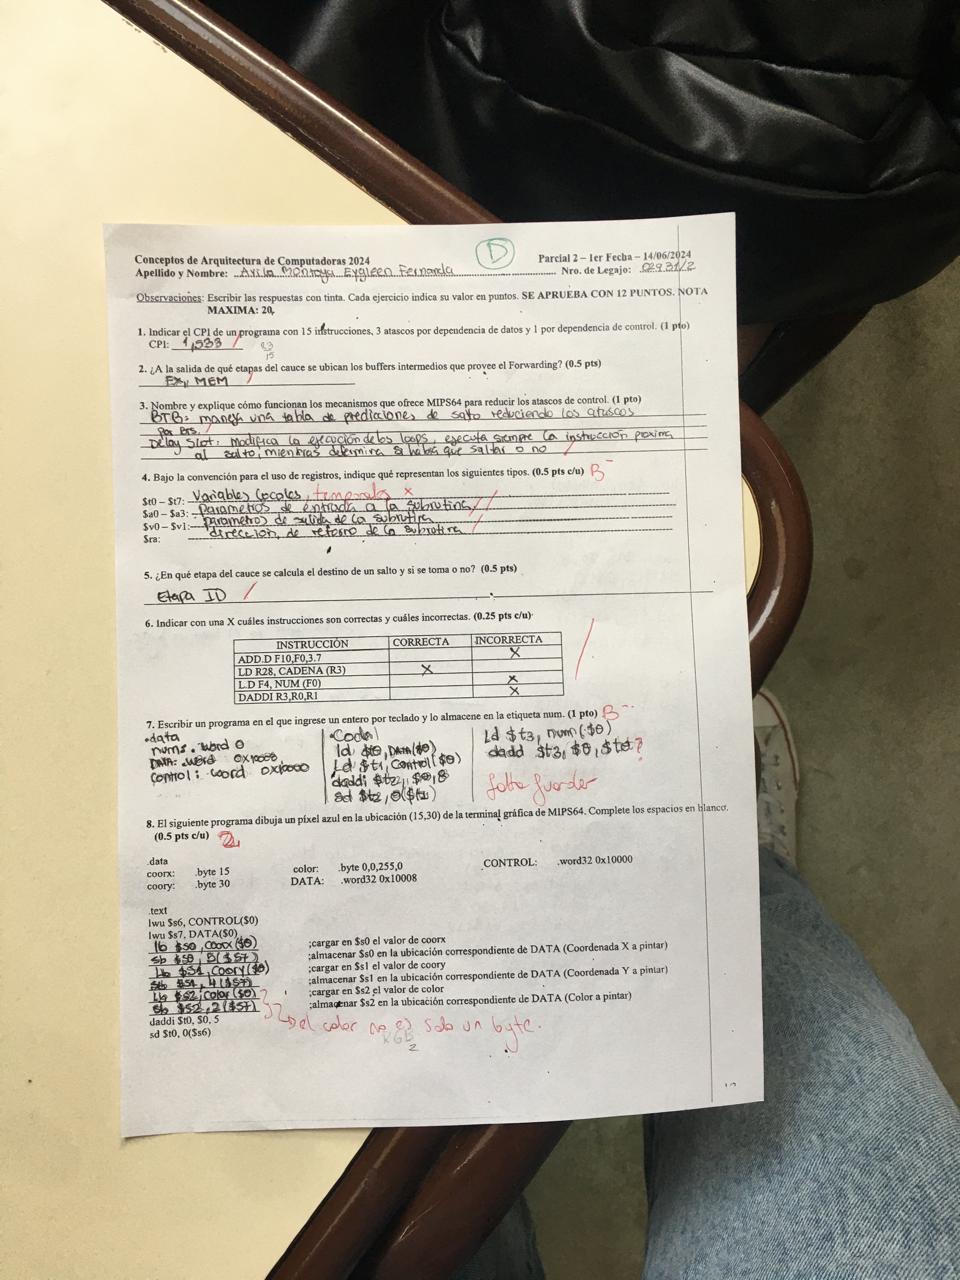 D
Conceptos de Arquitectura de Computadoras 2024
Parcial 2 – 1er Fecha – 14/06/2024
Apellido y Nombre: Avila Montoya Eygleen Fernanda
Nro. de Legajo: 02931/2
Observaciones: Escribir las respuestas con tinta. Cada ejercicio indica su valor en puntos. SE APRUEBA CON 12 PUNTOS. NOTA
MAXIMA: 20.
1. Indicar el CPI de un programa con 15 instrucciones, 3 atascos por dependencia de datos y 1 por dependencia de control. (1 pto)
CPI: 1,533
23
15
2. ¿A la salida de qué etapas del cauce se ubican los buffers intermedios que provee el Forwarding? (0.5 pts)
EX, MEM
3. Nombre y explique cómo funcionan los mecanismos que ofrece MIPS64 para reducir los atascos de control. (1 pto)
BTB: maneja una tabla de predicciones de salto reduciendo los atascos
por BTS.
Delay Slot: Modifica la ejecución de los loops, ejecuta siempre la instrucción proxima
al salto, mientras determina si había que saltar o no
4. Bajo la convención para el uso de registros, indique qué representan los siguientes tipos. (0.5 pts c/u) B-
$t0 – $t7: Variables locales, temporales x
$a0 – $a3: Parametros de entrada a la subrutina
$v0 – $v1: parametros de salida de la subrutina
$ra: dirección de retorno de la subrutina
5. ¿En qué etapa del cauce se calcula el destino de un salto y si se toma o no? (0.5 pts)
Etapa ID
6. Indicar con una X cuáles instrucciones son correctas y cuáles incorrectas. (0.25 pts c/u)
INSTRUCCIÓN CORRECTA INCORRECTA
ADD.D F10,F0,3.7 X
LD R28, CADENA (R3) X
L.D F4, NUM (F0) X
DADDI R3,R0,R1 X
7. Escribir un programa en el que ingrese un entero por teclado y lo almacene en la etiqueta num. (1 pto) B--
.data
nums .word 0
DATA: .word 0x10008
Control: .word 0x10000
.Code
ld $t0, DATA($0)
Ld $t1, Control($0)
daddi $t2, $0, 8
sd $t2, 0($t1)
Ld $t3, num($0)
dadd $t3, $0, $t0?
falta guardar
8. El siguiente programa dibuja un píxel azul en la ubicación (15,30) de la terminal gráfica de MIPS64. Complete los espacios en blanco.
(0.5 pts c/u) 2
.data
coorx: .byte 15 color: .byte 0,0,255,0 CONTROL: .word32 0x10000
coory: .byte 30 DATA: .word32 0x10008
.text
lwu $s6, CONTROL($0)
lwu $s7, DATA($0)
lb $s0, coorx($0) ;cargar en $s0 el valor de coorx
sb $s0, 5($s7) ;almacenar $s0 en la ubicación correspondiente de DATA (Coordenada X a pintar)
Lb $s1, Coory($0) ;cargar en $s1 el valor de coory
sb $s1, 4($s7) ;almacenar $s1 en la ubicación correspondiente de DATA (Coordenada Y a pintar)
Lb $s2, Color($0) ;cargar en $s2 el valor de color
sb $s2, 2($s7) ;almacenar $s2 en la ubicación correspondiente de DATA (Color a pintar)
daddi $t0, $0, 5
sd $t0, 0($s6)
el color no es solo un byte.
RGB
2